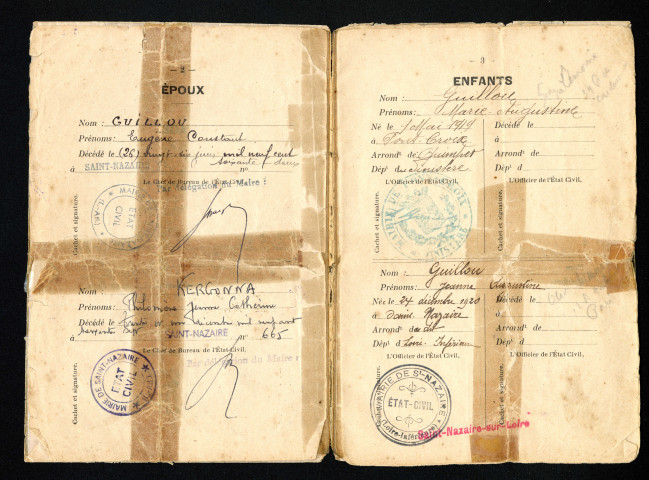 — 2 —
ÉPOUX
Nom : GUILLOU
Prénoms: Eugène Constant
Décédé le (26) vingt-six juin mil neuf cent
soixante deux
à SAINT-NAZAIRE n°
Le Chef de Bureau de l'État Civil,
Par délégation du Maire :
Cachet et signature.
MAIRIE
ÉTAT
CIVIL
Nom : KERGONNA
Prénoms: Philomène Jeanne Catherine
Décédé le
à SAINT-NAZAIRE n° 665
Le Chef de Bureau de l'État Civil,
Par délégation du Maire :
Cachet et signature.
MAIRIE DE SAINT-NAZAIRE
ÉTAT
CIVIL
3
ENFANTS
Nom : Guillou
Prénoms : Marie Augustine
Né le 7 Mai 1919
à Pont Croix
Arrond' de Quimper
Dép' du Finistère
L'Officier de l'État Civil,
Cachet et signature.
Décédé le
à
Arrond' de
Dép' d
L'Officier de l'État Civil,
Cachet et signature.
MAIRIE DE PONT-CROIX
FINISTÈRE
Nom : Guillou
Prénoms: Jeanne Augustine
Née le 24 décembre 1920
à Saint Nazaire
Arrond' de
Dép' d Loire-Inférieure
L'Officier de l'État Civil,
Cachet et signature.
Décédé le
à
Arrond' de
Dép' d
L'Officier de l'État Civil,
Cachet et signature.
MAIRIE DE St-NAZAIRE
ÉTAT-CIVIL
(Loire-Inférieure)
Saint-Nazaire-sur-Loire